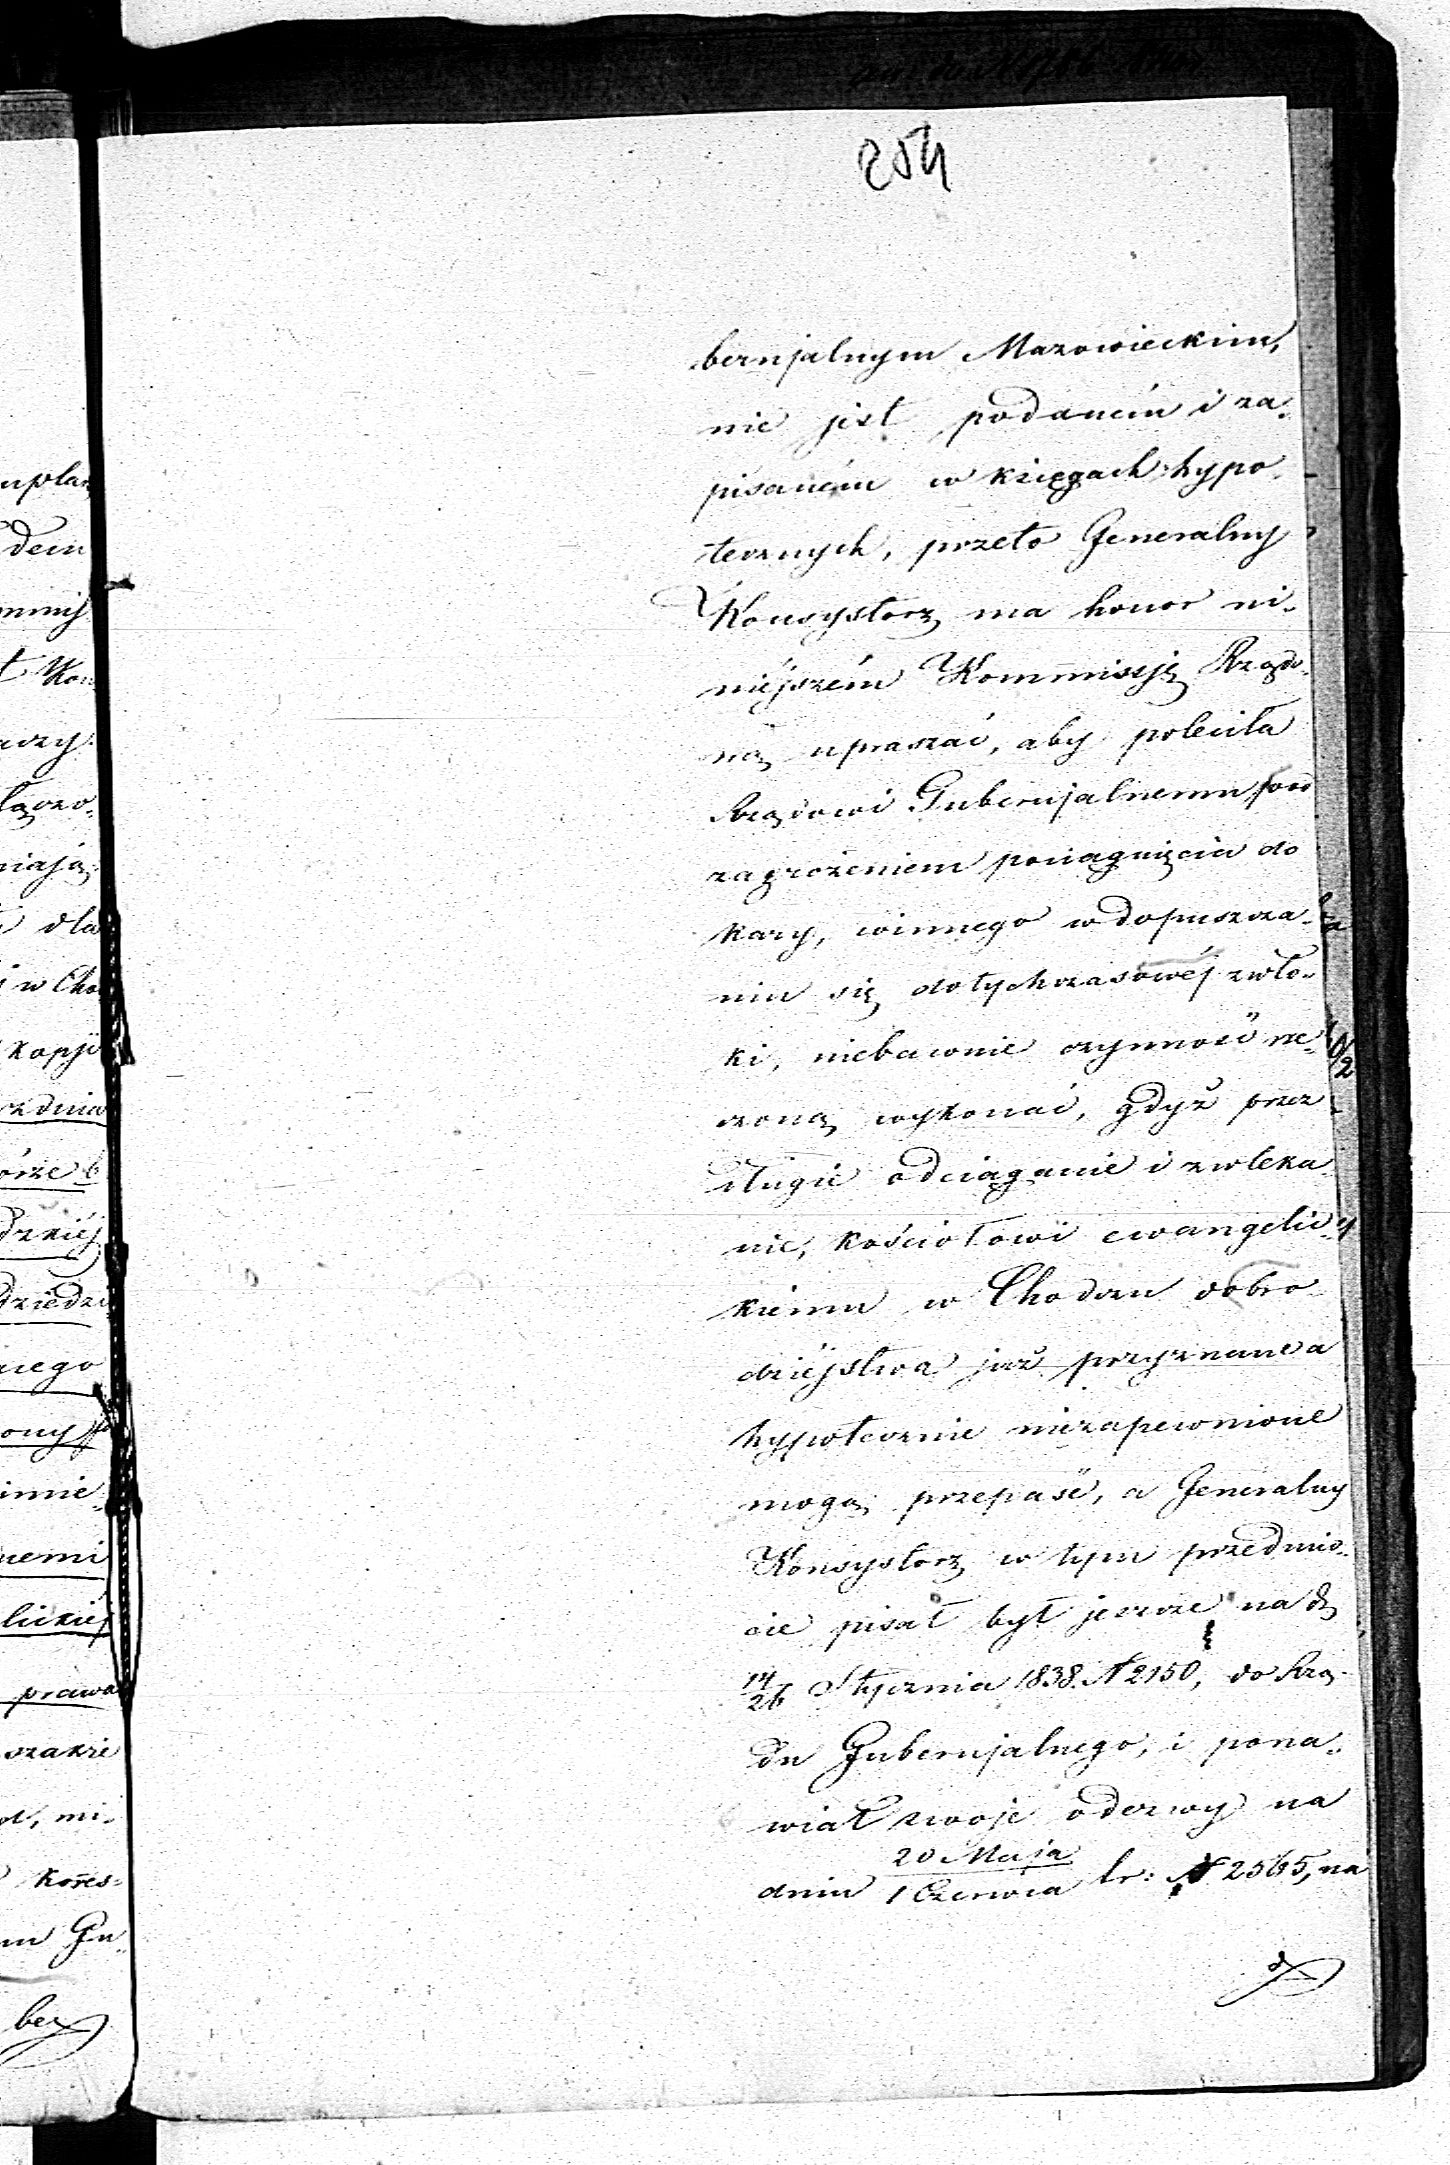 254
bernjalnym Mazowieckim,
nie jest podaném i za-
pisaném w księgach hypo-
tecznych, przeto Generalny
Konsystorz ma honor ni-
niéjszém Kommissję Rządo-
wą upraszać, aby poleciła
Rządowi Gubernjalnemu pod
zagrożeniem pociągnięcia do
kary, winnego w dopuszcza-
niu się dotychczasowéj zwło-
ki, niebawnie czynność rze-
czoną wykonać, gdyż przez
długie odciąganie i zwleka-
nie, kościołowi ewangelic-
kiemu w Chodczu dobro-
dziéjstwa już przyznane a
hypotecznie niezapewnione
mogą przepaść, a Generalny
Konsystorz w tym przedmio-
cie pisał był jeszcze na d.
14/26 Stycznia 1838. N 2150, do Rzą-
du Gubernjalnego, i pona-
wiał swoje odezwy na
dniu 20 Maja / 1 Czerwca br: N 2565, na
uplan
dem
t Kon
dla
w Cho
kopji
zdnia
dzkiéj
dziedzi
nego
ony
imie
nemi
lickiéj
prawa
szakże
mi-
kores-
m Gu-
ber